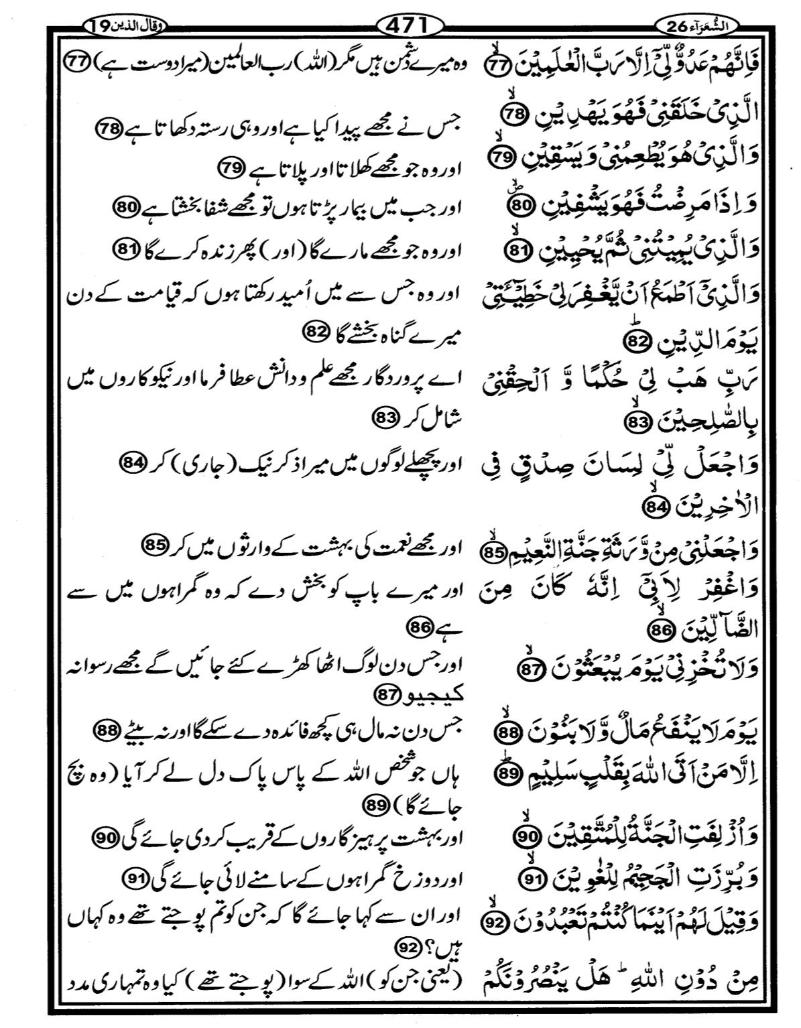 الشُّعَرَآء 26
471
وقال الذین 19
فَاِنَّهُمْ عَدُوٌّ لِّیْۤ اِلَّا رَبَّ الْعٰلَمِیْنَ ۙ 77 وہ میرے دشمن ہیں مگر (اللہ) رب العالمین (میرا دوست ہے) 77
الَّذِیْ خَلَقَنِیْ فَهُوَ یَهْدِیْنِ ۙ 78 جس نے مجھے پیدا کیا ہے اور وہی رستہ دکھاتا ہے 78
وَالَّذِیْ هُوَ یُطْعِمُنِیْ وَیَسْقِیْنِ ۙ 79 اور وہ جو مجھے کھلاتا اور پلاتا ہے 79
وَاِذَا مَرِضْتُ فَهُوَ یَشْفِیْنِ 80 اور جب میں بیمار پڑتا ہوں تو مجھے شفا بخشتا ہے 80
وَالَّذِیْ یُمِیْتُنِیْ ثُمَّ یُحْیِیْنِ ۙ 81 اور وہ جو مجھے مارے گا (اور) پھر زندہ کرے گا 81
وَالَّذِیْۤ اَطْمَعُ اَنْ یَّغْفِرَ لِیْ خَطِیْٓـَٔتِیْ اور وہ جس سے میں اُمید رکھتا ہوں کہ قیامت کے دن
یَوْمَ الدِّیْنِ ؕ 82 میرے گناہ بخشے گا 82
رَبِّ هَبْ لِیْ حُكْمًا وَّ اَلْحِقْنِیْ اے پروردگار مجھے علم و دانش عطا فرما اور نیکوکاروں میں
بِالصّٰلِحِیْنَ ۙ 83 شامل کر 83
وَاجْعَلْ لِّیْ لِسَانَ صِدْقٍ فِی اور پچھلے لوگوں میں میرا ذکر نیک (جاری) کر 84
الْاٰخِرِیْنَ ۙ 84
وَاجْعَلْنِیْ مِنْ وَّرَثَةِ جَنَّةِ النَّعِیْمِ ۙ 85 اور مجھے نعمت کی بہشت کے وارثوں میں کر 85
وَاغْفِرْ لِاَبِیْۤ اِنَّهٗ كَانَ مِنَ اور میرے باپ کو بخش دے کہ وہ گمراہوں میں سے
الضَّآلِّیْنَ ۙ 86 ہے 86
وَلَا تُخْزِنِیْ یَوْمَ یُبْعَثُوْنَ ۙ 87 اور جس دن لوگ اٹھا کھڑے کئے جائیں گے مجھے رسوا نہ
کیجیو 87
یَوْمَ لَا یَنْفَعُ مَالٌ وَّلَا بَنُوْنَ ۙ 88 جس دن نہ مال ہی کچھ فائدہ دے سکے گا اور نہ بیٹے 88
اِلَّا مَنْ اَتَی اللّٰهَ بِقَلْبٍ سَلِیْمٍ ؕ 89 ہاں جو شخص اللہ کے پاس پاک دل لے کر آیا (وہ بچ
جائے گا) 89
وَاُزْلِفَتِ الْجَنَّةُ لِلْمُتَّقِیْنَ ۙ 90 اور بہشت پرہیزگاروں کے قریب کر دی جائے گی 90
وَبُرِّزَتِ الْجَحِیْمُ لِلْغٰوِیْنَ ۙ 91 اور دوزخ گمراہوں کے سامنے لائی جائے گی 91
وَقِیْلَ لَهُمْ اَیْنَمَا كُنْتُمْ تَعْبُدُوْنَ ۙ 92 اور ان سے کہا جائے گا کہ جن کو تم پوجتے تھے وہ کہاں
ہیں؟ 92
مِنْ دُوْنِ اللّٰهِ ؕ هَلْ یَنْصُرُوْنَكُمْ (یعنی جن کو) اللہ کے سوا (پوجتے تھے) کیا وہ تمہاری مدد